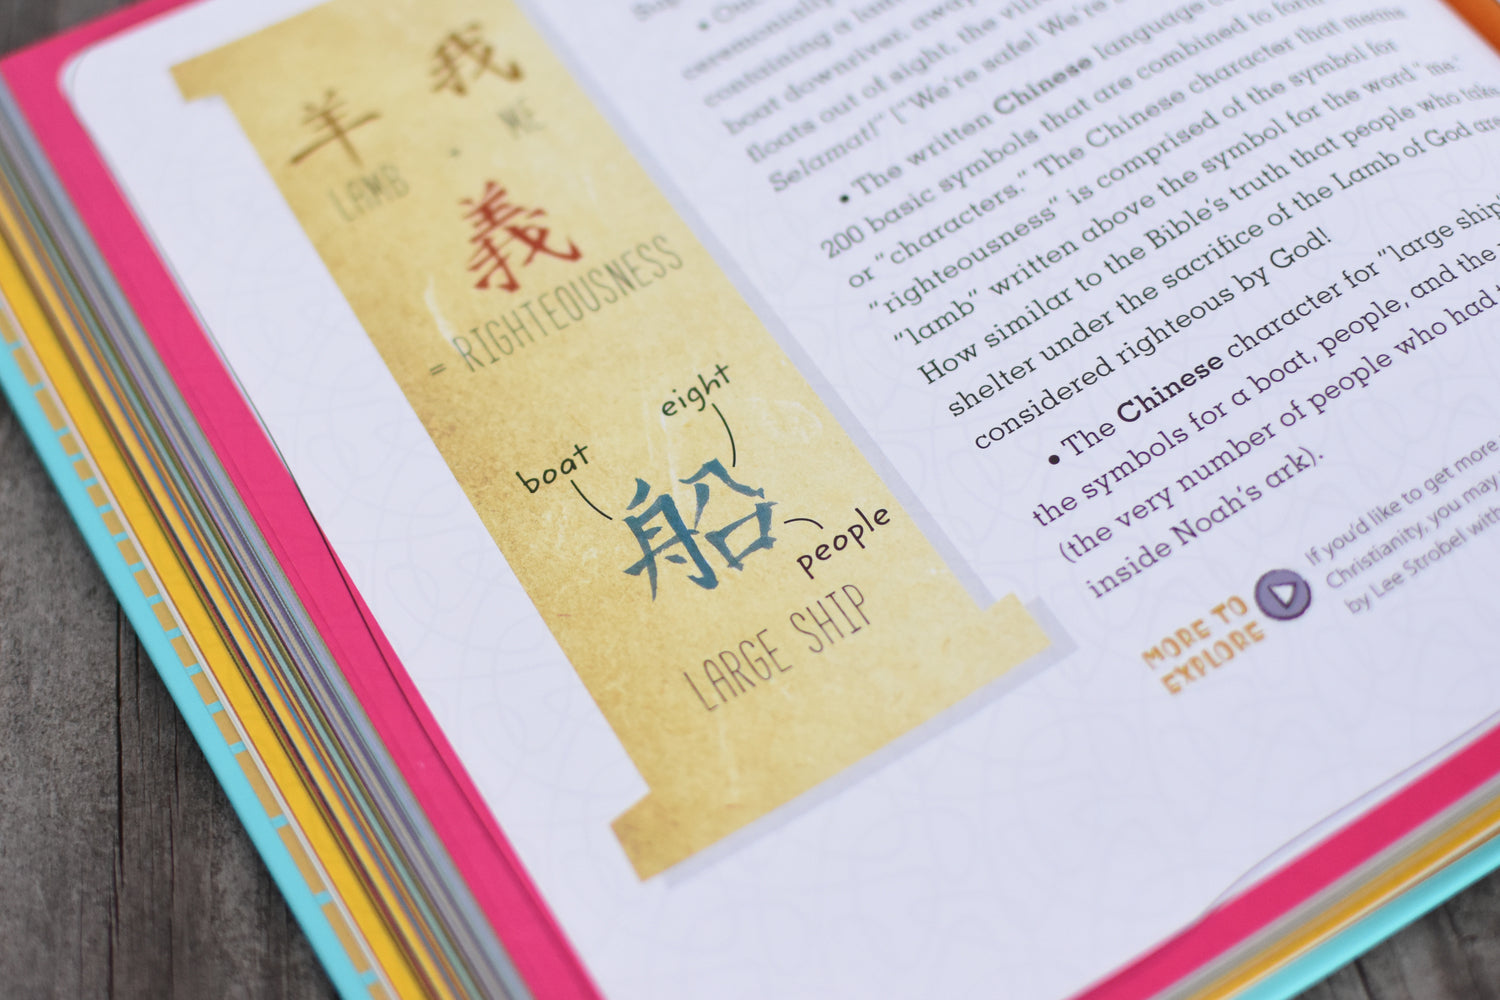 羊
我
LAMB
ME
義
= RIGHTEOUSNESS
eight
boat
船
people
LARGE SHIP
• Our
ceremonially
containing a lam
boat downriver, away
floats out of sight, the vill
Selamat!" ["We're safe! We're
• The written Chinese language
200 basic symbols that are combined to form
or "characters." The Chinese character that means
"righteousness" is comprised of the symbol for
"lamb" written above the symbol for the word "me."
How similar to the Bible's truth that people who take
shelter under the sacrifice of the Lamb of God are
considered righteous by God!
• The Chinese character for "large ship"
the symbols for a boat, people, and the
(the very number of people who had
inside Noah's ark).
MORE TO
EXPLORE
If you'd like to get more
Christianity, you may
by Lee Strobel with